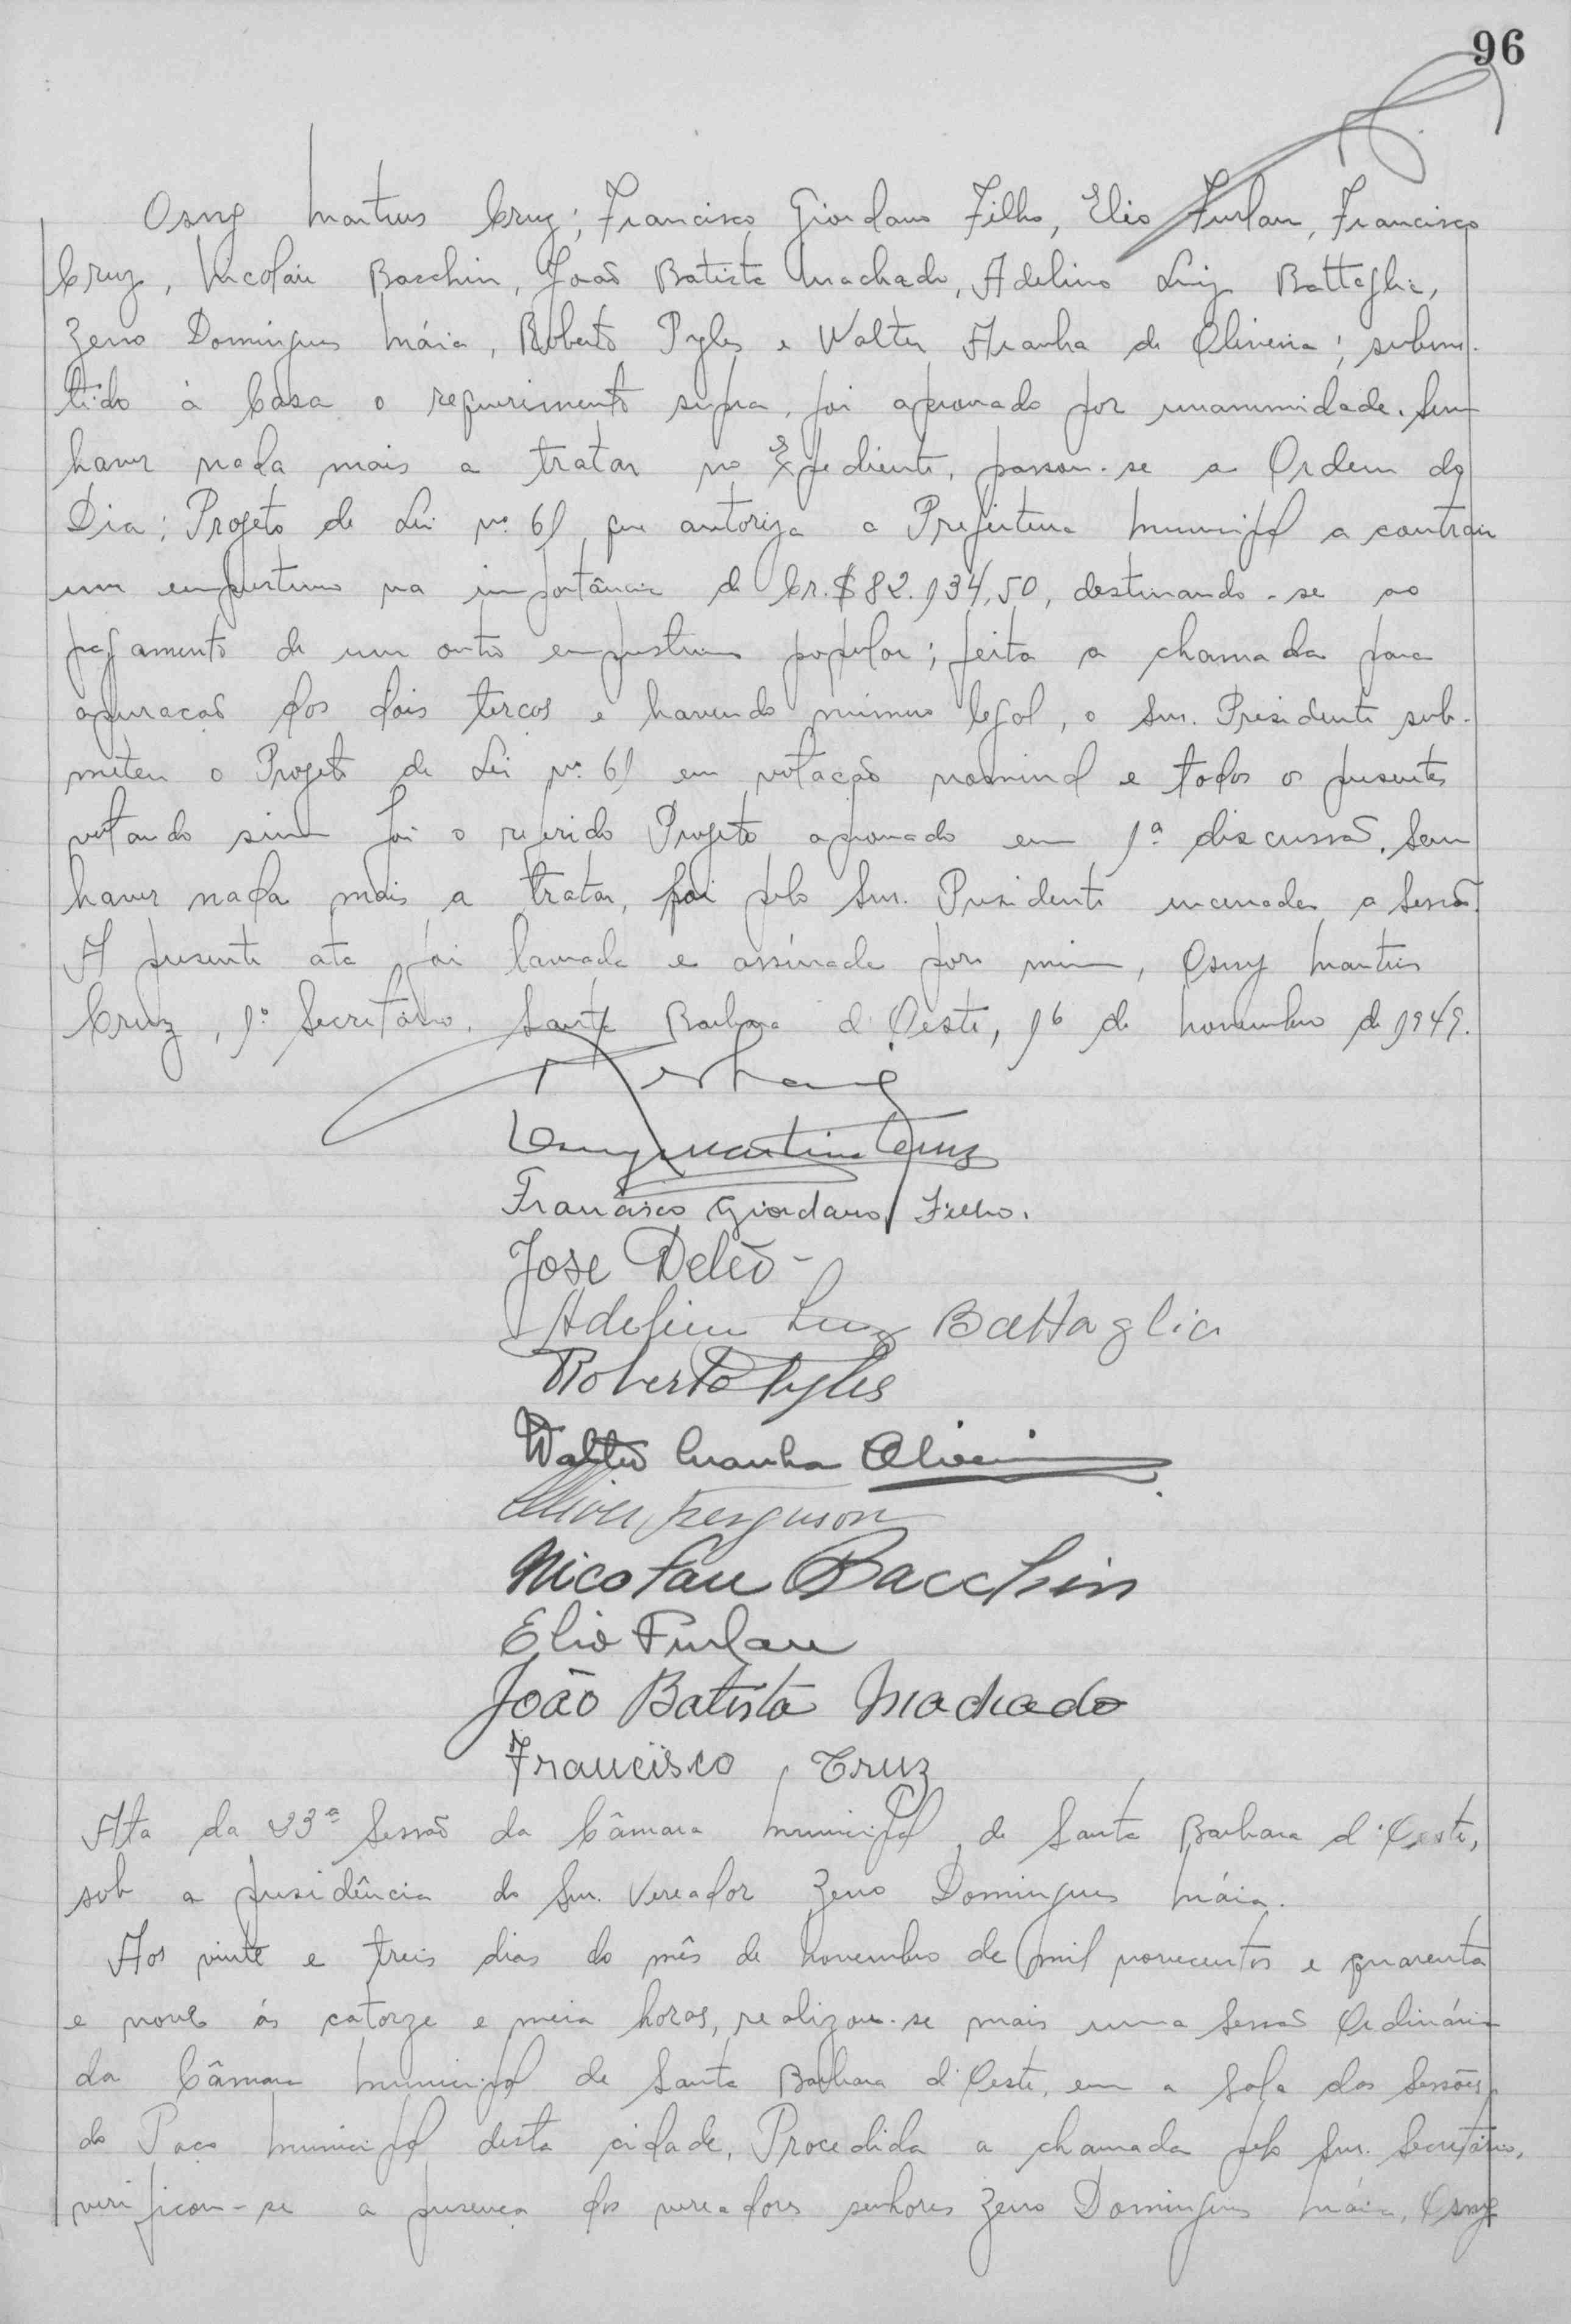 96
Osny Martins Cruz; Francisco Giordano Filho, Elio Furlan, Francisco
Cruz, Nicolau Bacchin, João Batista Machado, Adelino Luiz Battaglia,
Zeno Domingues Máia, Roberto Pyles e Walter Aranha de Oliveira; subme-
tido à Casa o requerimento supra, foi aprovado por unanimidade. Sem
haver nada mais a tratar no Expediente, passou-se a Ordem do
Dia: Projeto de Lei nº 61, que autoriza a Prefeitura Municipal a contrair
um emprestimo na importância de Cr.$82.134,50, destinando-se ao
pagamento de um outro emprestimo popular; feita a chamada para
apuracaõ dos dois tercos e havendo número legal, o Snr. Presidente sub-
meteu o Projeto de Lei nº 61 em votação nominal e todos os presentes
votando sim foi o referido Projeto aprovado em 1ª discussaõ. Sem
haver nada mais a tratar, foi pelo Snr. Presidente encerrada a Sessaõ.
A presente ata foi lavrada e assinada por mim, Osny Martins
Cruz, 1º Secretário. Santa Barbara d'Oeste, 16 de novembro de 1949.
Osny Martins Cruz
Francisco Giordano Filho.
Jose Deleo -
Adelino Luiz Battaglia
Roberto Pyles
Walter Aranha Oliveira
Oliver Ferguson
Nicolau Bacchin
Elio Furlan
João Batista Machado
Francisco Cruz
Ata da 33ª Sessaõ da Câmara Municipal de Santa Barbara d'Oeste,
sob a presidência do Snr. Vereador Zeno Domingues Máia.
Aos vinte e treis dias do mês de novembro de mil novecentos e quarenta
e nove ás catorze e meia horas, realizou-se mais uma Sessaõ Ordinária
da Câmara Municipal de Santa Barbara d'Oeste, em a Sala das Sessões
do Paço Municipal desta cidade. Procedida a chamada pelo Snr. Secretário,
verificou-se a presença dos vereadores senhores Zeno Domingues Máia, Osny